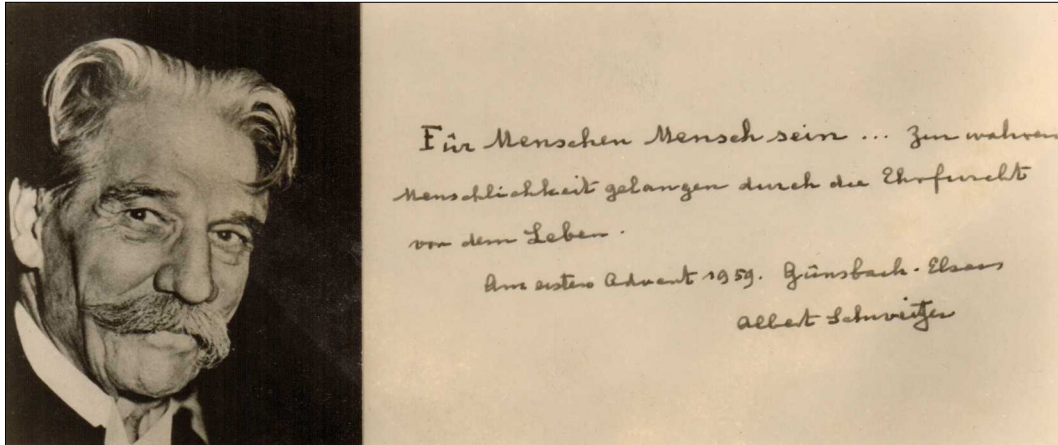 Für Menschen Mensch sein ... Zur wahren
Menschlichkeit gelangen durch die Ehrfurcht
vor dem Leben.
Am ersten Advent 1959. Günsbach. Elsass
Albert Schweitzer